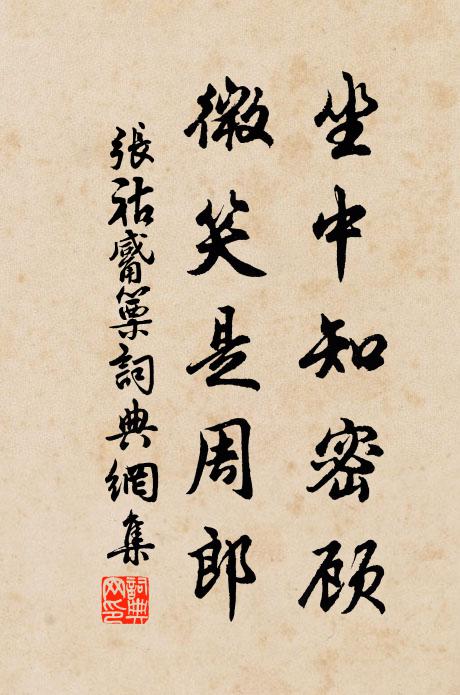 坐中知密顾
微笑是周郎
張祜觱篥詞典網集
詞典網印